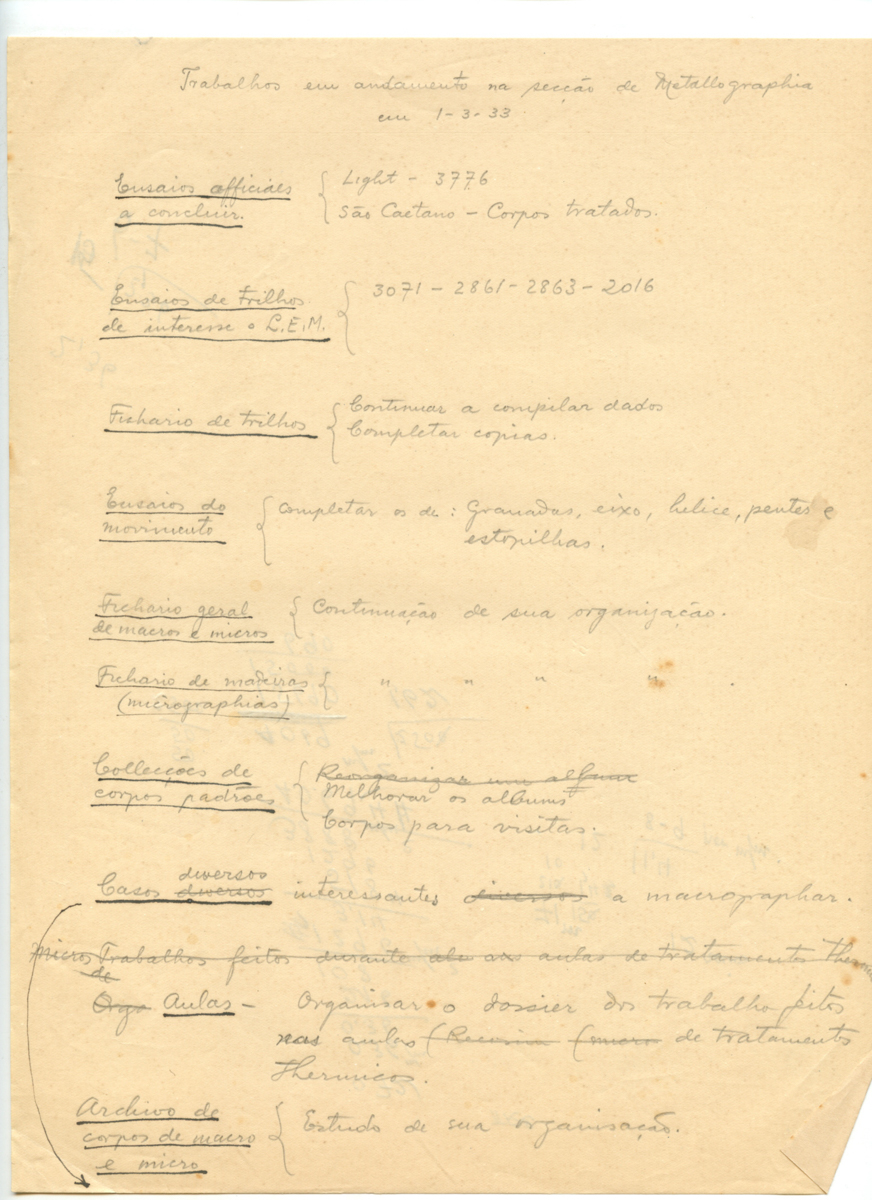 Trabalhos em andamento na secção de Metallographia
em 1-3-33
Ensaios officiaes { Light - 3776
a concluir. São Caetano - Corpos tratados.
Ensaios de trilhos { 3071 - 2861 - 2863 - 2016
de interesse o L.E.M.
Fichario de trilhos { Continuar a compilar dados
Completar copias.
Ensaios do { Completar os de : Granadas, eixo, helice, pentes e
movimento estopilhas.
Fichario geral { Continuação de sua organização.
de macros e micros
Fichario de madeiras { " " " " .
(micrographias)
Collecções de { Reorganizar um album
corpos padrões Melhorar os albuns
Corpos para visitas.
diversos
Casos diversos interessantes diversos a macrographar.
micros Trabalhos feitos durante as aulas de tratamentos
de
Orga Aulas - Organisar o dossier dos trabalho feitos
nas aulas (micro de tratamentos
thermicos.
Archivo de { Estudo de sua organisação.
corpos de macro
e micro